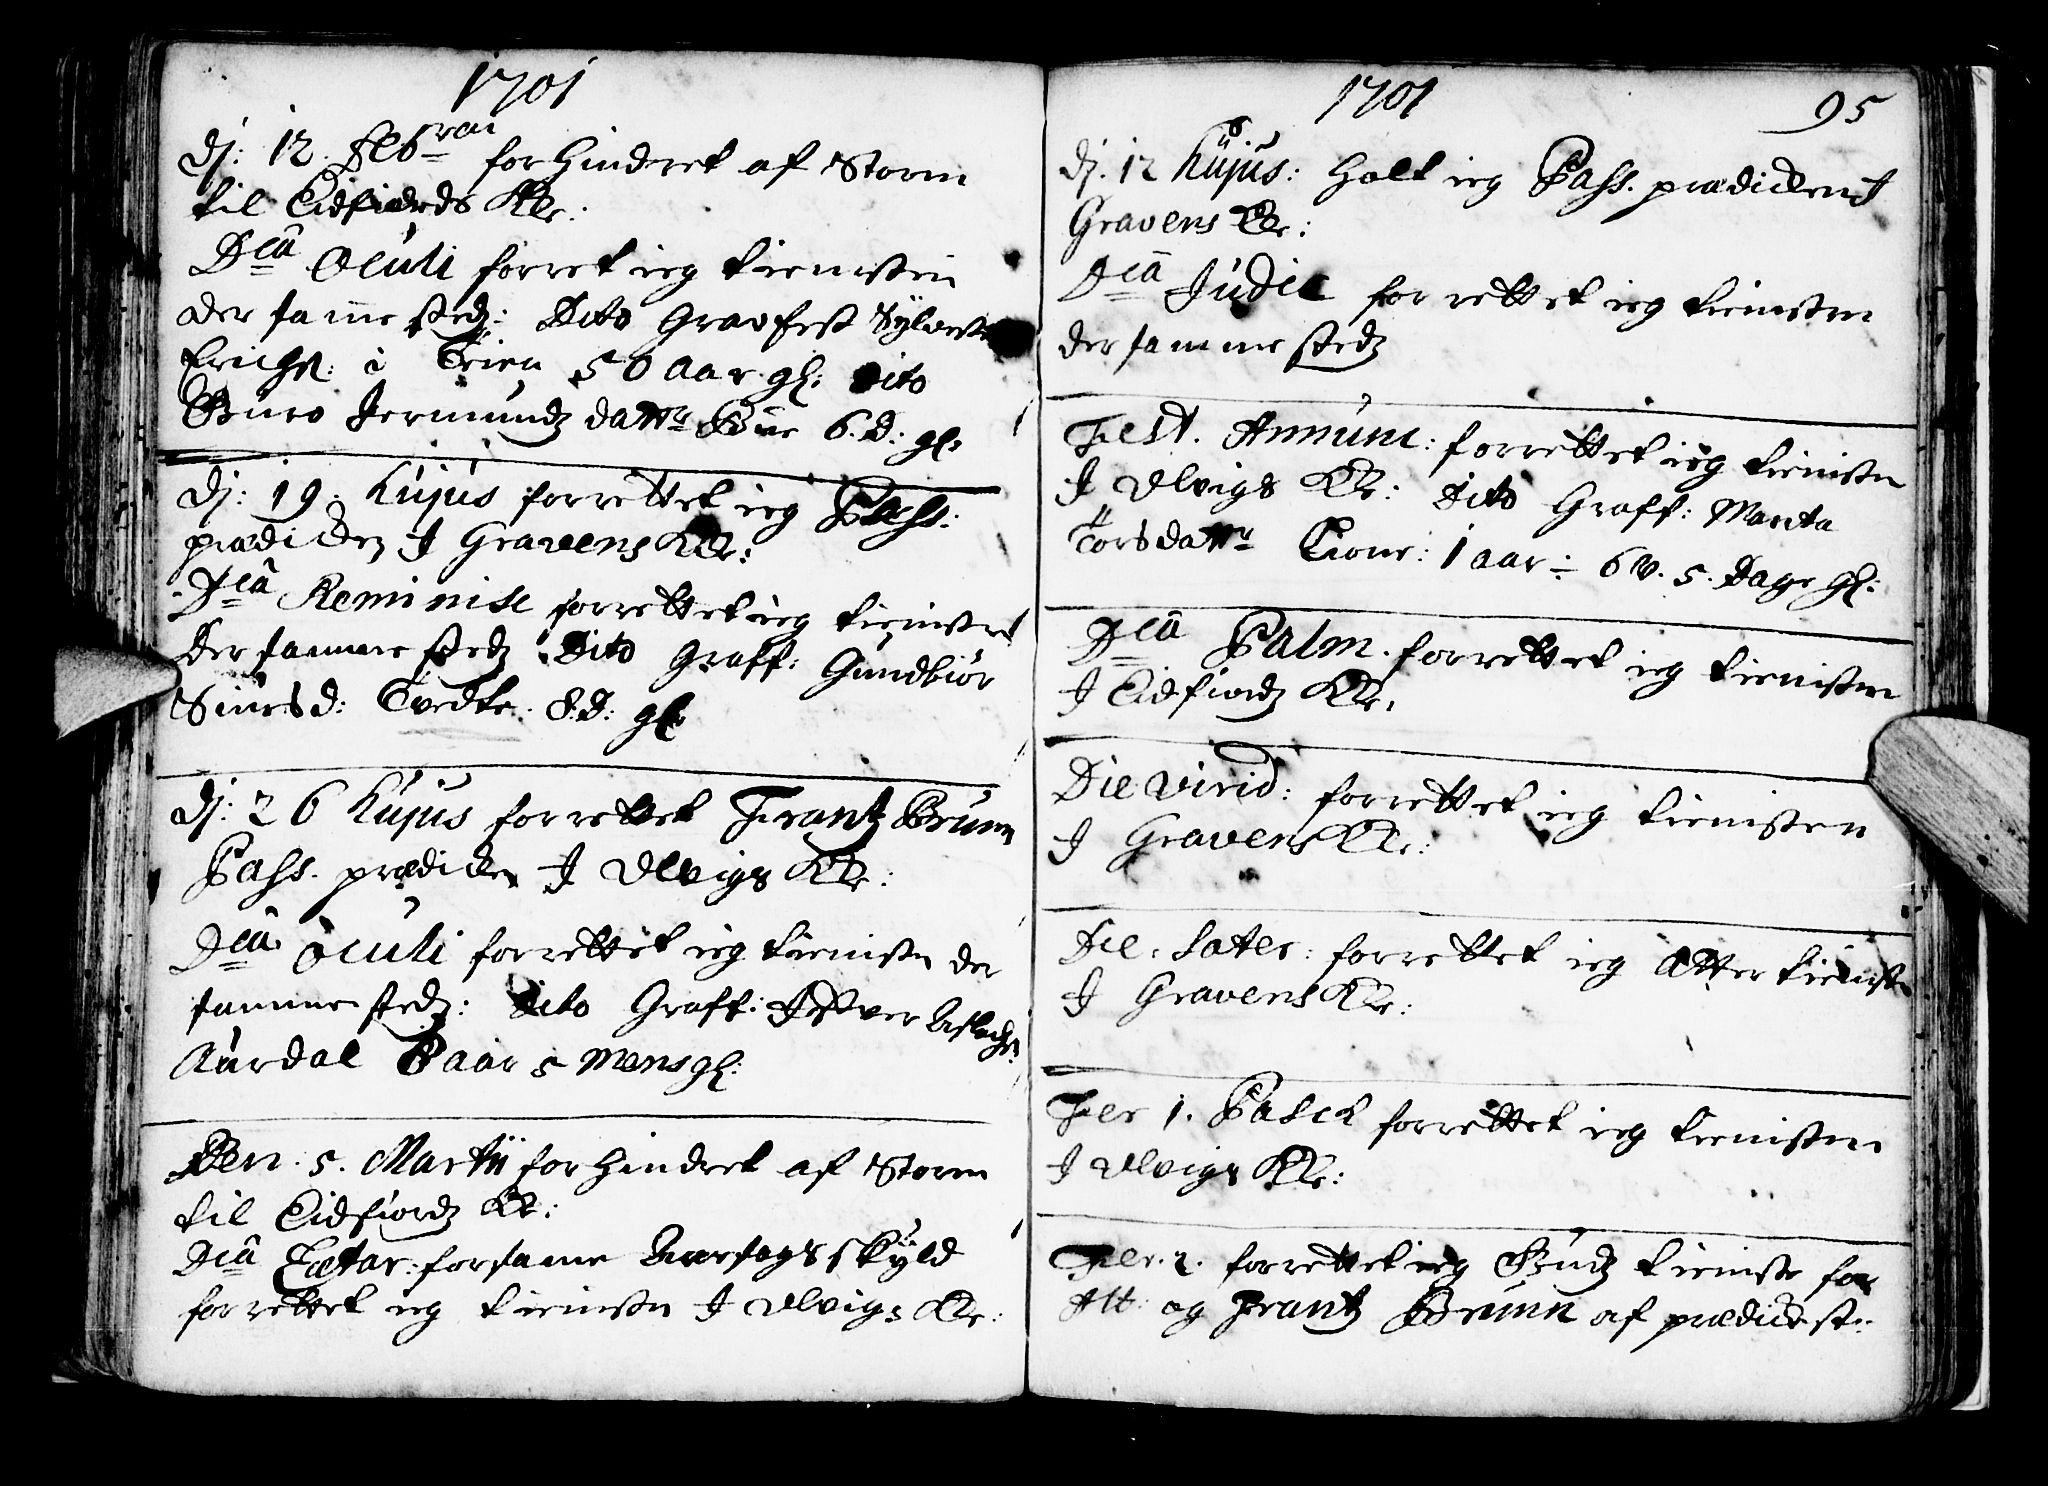 1701
Dj: 12. Febrrai forhindret af Storm
til Eidfiords Kr:
Dcâ Oculi forret ieg tienisten
der samme steds: Dito Gravfest Sylvest
Erichs: i Trien 50 aar. gl: Dito
Guro Jermunds dattr Bue 6. D: gl:
Dj: 19. Hujus forrettet ieg Pass:
prædicken J Gravens Kr:
Dcâ Reminisc forrettet ieg tienisten
der samme steds Dito Graff: Gundbiør
Siursd: Tvedte. 8. D: gl:
Dj: 26 Hujus forrettet Frantz Brunn
Pass. prædicken J Ulvigs Kr:
Dcâ Oculi forrettet ieg tienisten der
samme steds: Dito Graff: Iffver Aslachs:
Aurdal 8 aar 5 Mens gl:
Den. 5. Martii forhindret af Storm
til Eidfiords Kr:
Dcâ Lætar: for same Aarsags skyld
forrettet ieg tienisten J Ulvigs Kr:
1701 95
Dj. 12 Hujus: holt ieg Pass. prædicken J
Gravens Kr:
Dcâ Judic forrettet ieg tienisten
der samme steds
Fest. Annunc: forrettet ieg tienisten
J Ulvigs Kr: Dito Graff: Marita
Torsdattr Tione: 1 aar ÷ 6 V. 5. Dage gl:
Dcâ Palm. forrettet ieg tienisten
J Eidfiords Kr.
Die Virid: forrettet ieg tienisten
J Gravens Kr:
Die. Sater: forrettet ieg Atter tienist
J Gravens Kr:
Fer 1. Pasch forrettet ieg tienisten
J Ulvigs Kr:
Fer. 2. forrettet ieg Guds tieniste for
Alt: og Frantz Brunn af prædickest: